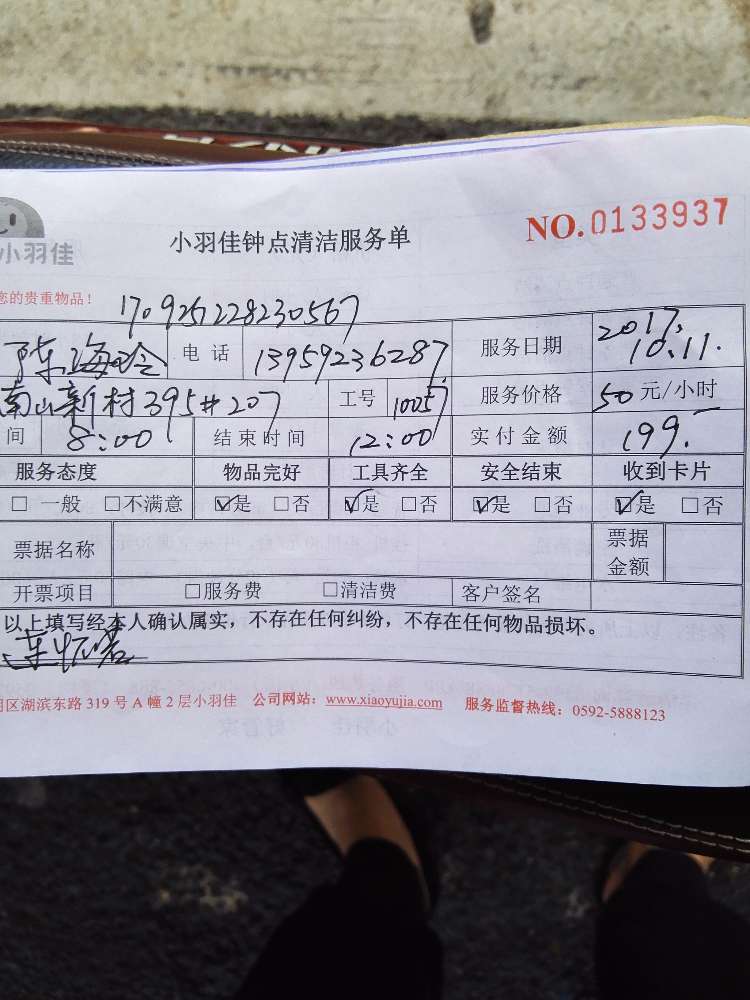 NO.0133937
小羽佳
小羽佳钟点清洁服务单
您的贵重物品!
1709251228230567
陈海玲 电话 13959236287 服务日期 2017.10.11.
南山新村395#207 工号 10057 服务价格 50元/小时
间 8:00 结束时间 12:00 实付金额 199.-
服务态度 物品完好 工具齐全 安全结束 收到卡片
□ 一般 □不满意 ☑是 □否 ☑是 □否 ☑是 □否 ☑是 □否
票据名称 票据金额
开票项目 □服务费 □清洁费 客户签名
以上填写经本人确认属实，不存在任何纠纷，不存在任何物品损坏。
区湖滨东路 319 号 A 幢 2 层小羽佳 公司网站：www.xiaoyujia.com 服务监督热线：0592-5888123